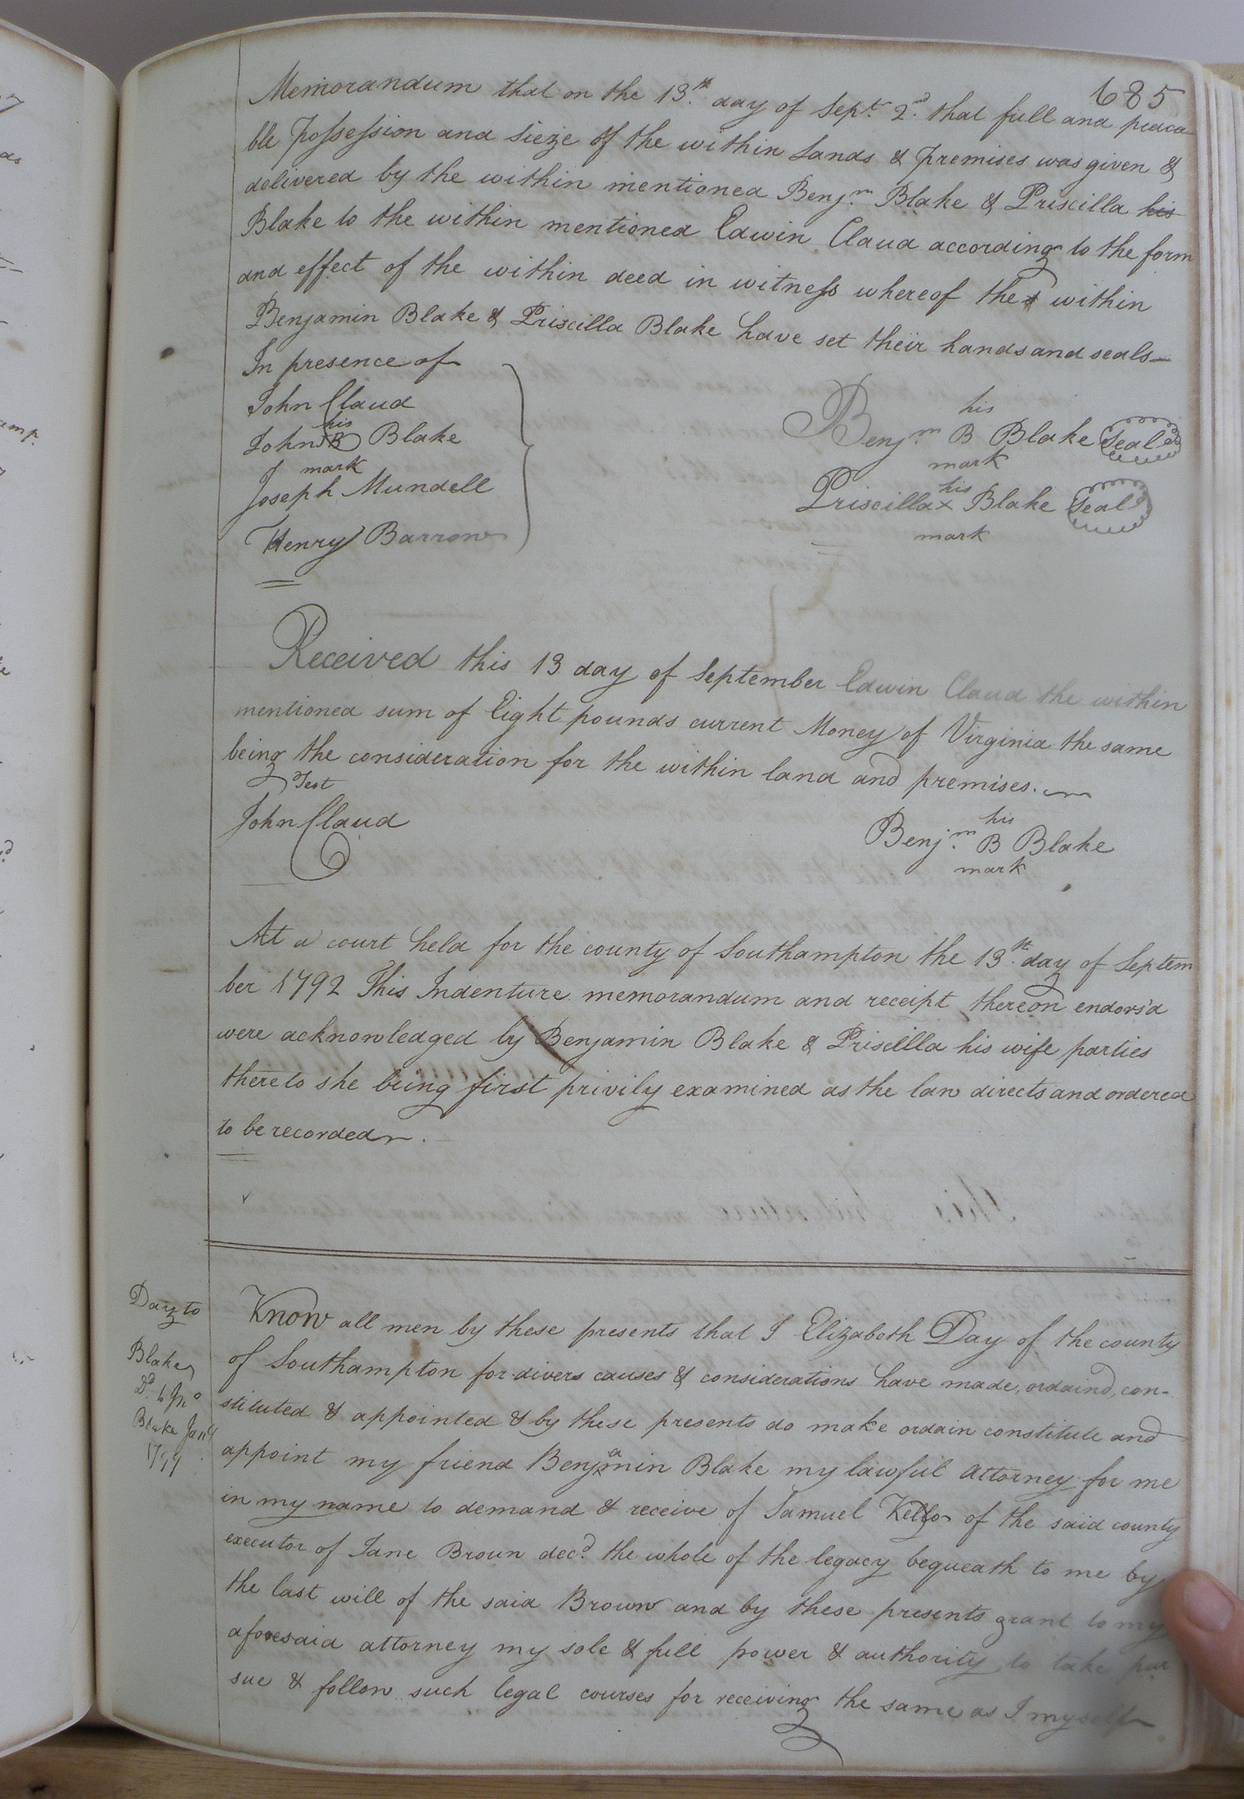 685
Memorandum that on the 13.th day of Sept.r 2.d that full and peacea
ble possession and sieze of the within Lands & premises was given &
delivered by the within mentioned Benj.m Blake & Priscilla his
Blake to the within mentioned Edwin Claud according to the form
and effect of the within deed in witness whereof the within
Benjamin Blake & Priscilla Blake have set their hands and seals
In presence of
John Claud
John his B mark Blake
Joseph Mundell
Henry Barrow
Benj.m his B mark Blake Seal
Priscilla his x mark Blake Seal
Received this 13 day of September Edwin Claud the within
mentioned sum of Eight pounds current Money of Virginia the same
being the consideration for the within land and premises.
Test
John Claud
Benj.m his B mark Blake
At a court held for the county of Southampton the 13.th day of Septem
ber 1792 This Indenture memorandum and receipt thereon endors'd
were acknowledged by Benjamin Blake & Priscillla his wife parties
thereto she being first privily examined as the law directs and ordered
to be recorded.
Day to
Blake
Dd to Jno
Blake Jany
1799
Know all men by these presents that I Elizabeth Day of the county
of Southampton for divers causes & considerations have made, ordaind, con-
stituted & appointed & by these presents do make ordain constitute and
appoint my friend Benjamin Blake my lawful Attorney for me
in my name to demand & receive of Samuel Kello of the said county
executor of Jane Broun decd. the whole of the legacy bequeath to me by
the last will of the said Brown and by these presents grant to my
aforesaid attorney my sole & full power & authority to take pur
sue & follow such legal courses for receiving the same as I myself